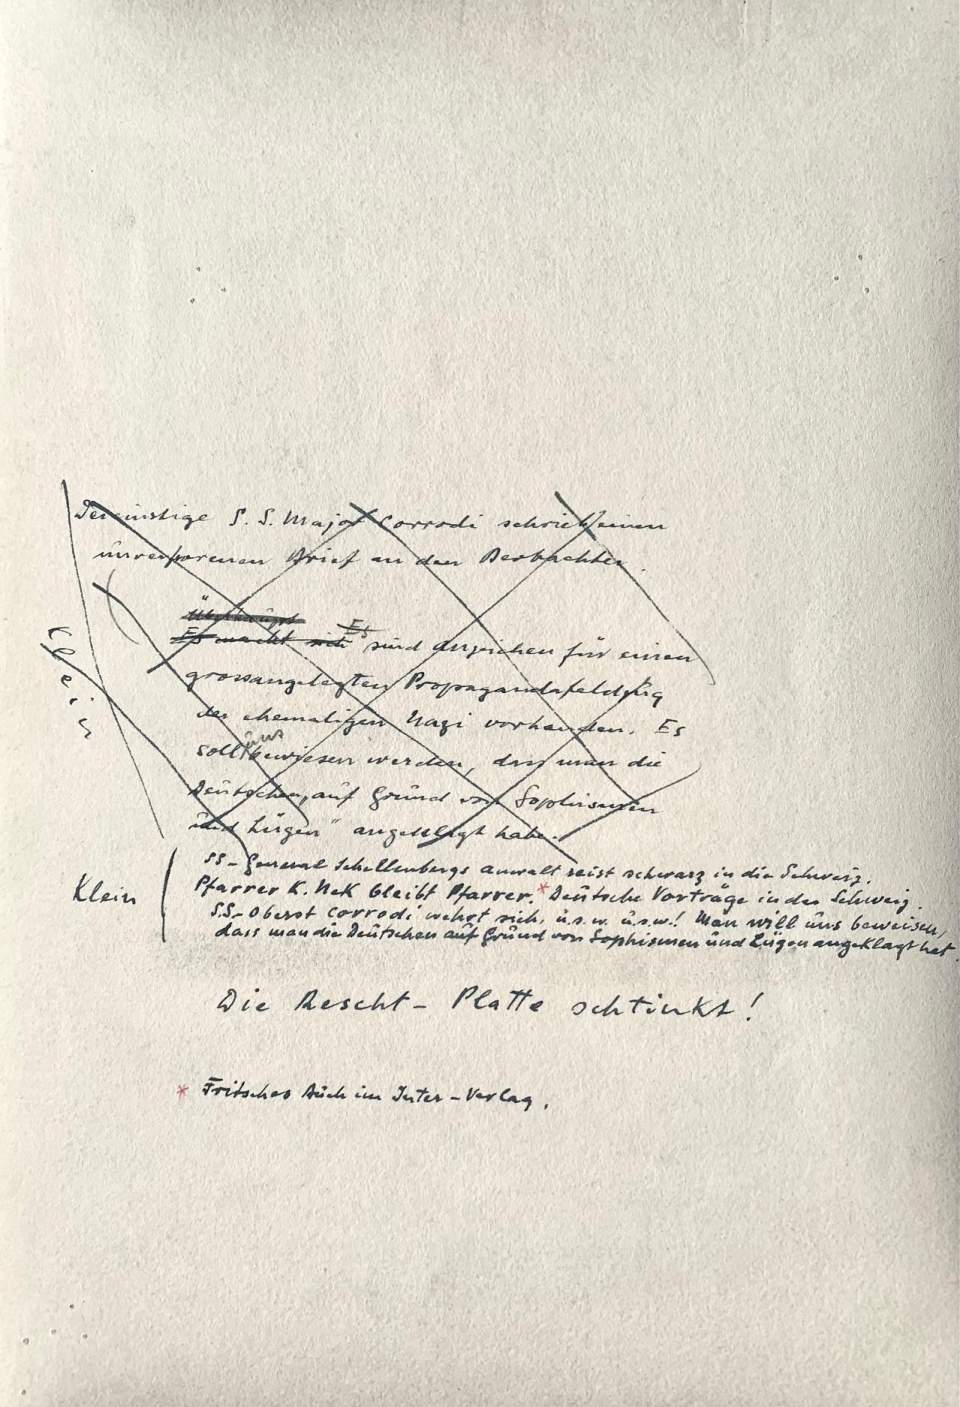 Der einstige S.S. Major Corrodi schrieb einen
unverfrorenen Brief an den Beobachter.
Überhaupt
Es macht sich Es sind anzeichen für einen
grossangelegten Propagandafeldzug
der ehemaligen Nazi vorhanden. Es
soll uns bewiesen werden, dass man die
Deutschen „auf Grund von Sophismen
und Lügen" angeklagt habe.
klein
SS-General Schellenbergs anwalt reist schwarz in die Schweiz.
Klein
Pfarrer K. Nek bleibt Pfarrer.* Deutsche Vorträge in der Schweiz.
S.S-Oberst Corrodi wehrt sich, u.s.w. u.s.w! Man will uns beweisen,
dass man die Deutschen auf Grund von Sophismen und Lügen angeklagt hat.
Die Rescht-Platte schtinkt!
* Fritsches Buch im Inter-Verlag.